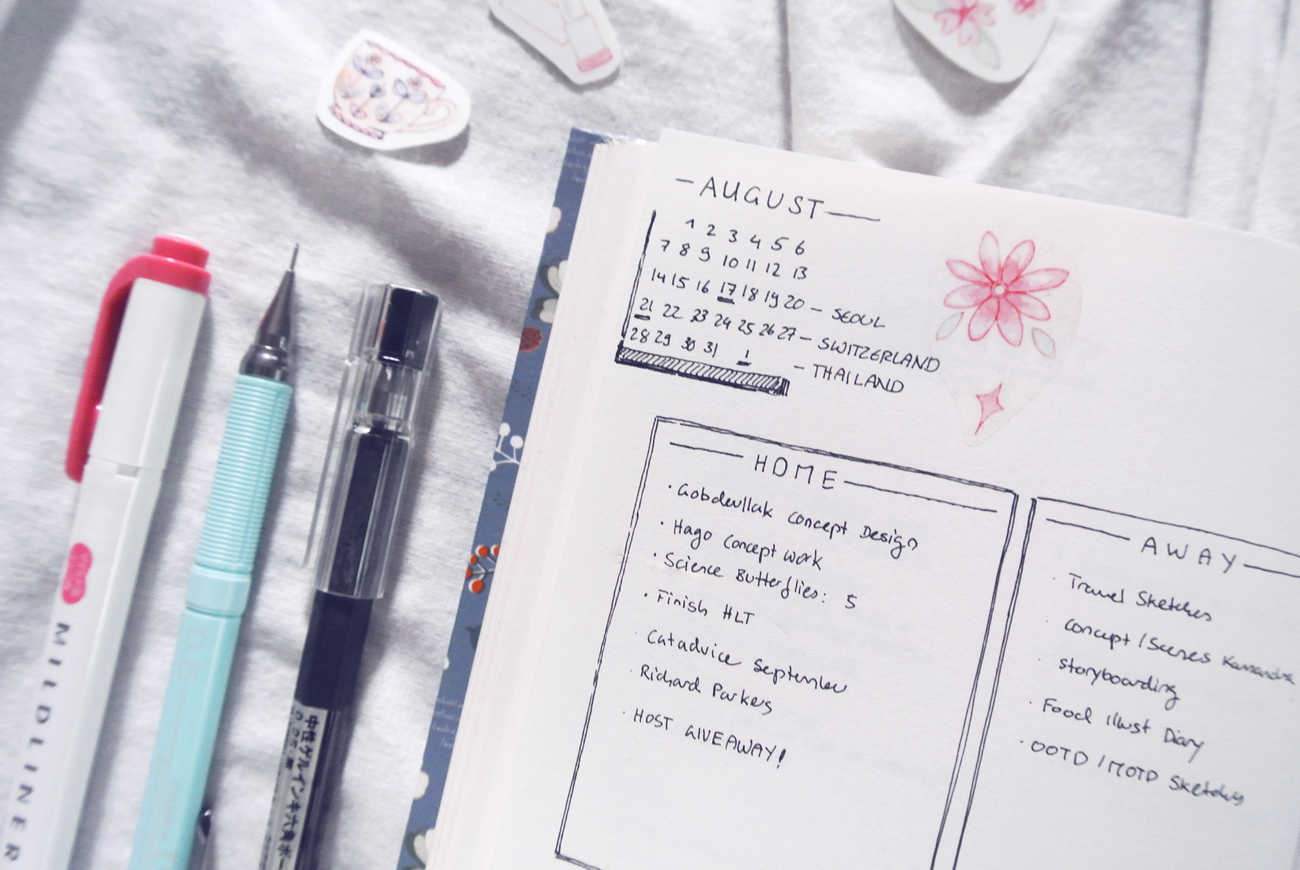 AUGUST
1 2 3 4 5 6
7 8 9 10 11 12 13
14 15 16 17 18 19 20 – SEOUL
21 22 23 24 25 26 27 – SWITZERLAND
28 29 30 31 1 – THAILAND
HOME
· Concept Design
· Hago Concept work
· Science Butterflies: 5
· Finish HLT
· Catadvice September
· Richard Parkers
· HOST GIVEAWAY!
AWAY
· Travel Sketches
· Concept / Scenes
· Storyboarding
· Food illust Diary
· OOTD / MOTD Sketches
MILDLINER
中性ゲルインキ六角ボー